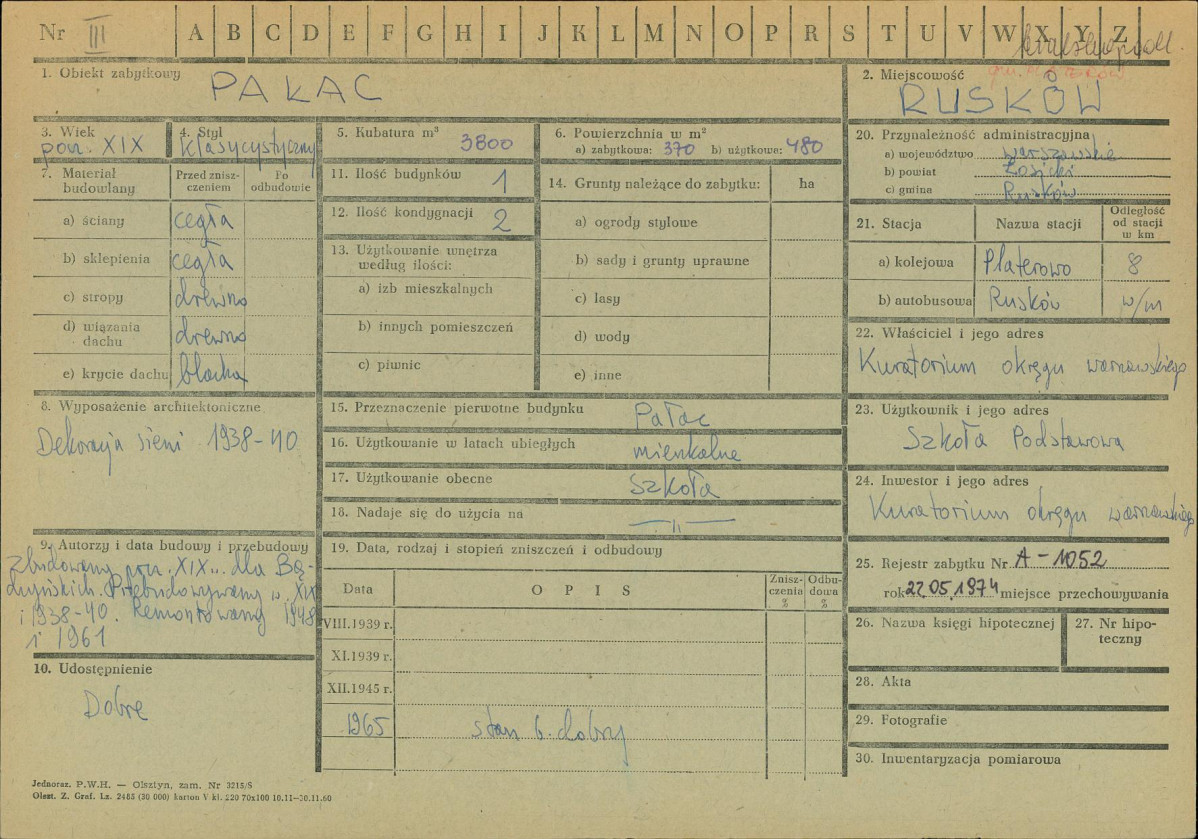 Nr III A B C D E F G H I J K L M N O P R S T U V W X Y Z
1. Obiekt zabytkowy PAŁAC
2. Miejscowość RUSKÓW
3. Wiek pocz. XIX
4. Styl klasycystyczny
5. Kubatura m³ 3800
6. Powierzchnia w m²
a) zabytkowa: 370 b) użytkowa: 480
7. Materiał budowlany
Przed zniszczeniem
Po odbudowie
a) ściany cegła
b) sklepienia cegła
c) stropy drewno
d) wiązania dachu drewno
e) krycie dachu blacha
8. Wyposażenie architektoniczne
Dekoracja sieni 1938-40
9. Autorzy i data budowy i przebudowy
Zbudowany pocz. XIX w. dla Bę-
dzyńskich. Przebudowywany w XIX
i 1938-40. Remontowany 1948
i 1961
10. Udostępnienie
Dobre
11. Ilość budynków 1
12. Ilość kondygnacji 2
13. Użytkowanie wnętrza
według ilości:
a) izb mieszkalnych
b) innych pomieszczeń
c) piwnic
14. Grunty należące do zabytku: ha
a) ogrody stylowe
b) sady i grunty uprawne
c) lasy
d) wody
e) inne
15. Przeznaczenie pierwotne budynku Pałac
16. Użytkowanie w latach ubiegłych mieszkalne
17. Użytkowanie obecne Szkoła
18. Nadaje się do użycia na —"—
19. Data, rodzaj i stopień zniszczeń i odbudowy
Data
OPIS
Zniszczenia %
Odbudowa %
VIII.1939 r.
XI.1939 r.
XII.1945 r.
1965 stan b. dobry
20. Przynależność administracyjna
a) województwo warszawskie
b) powiat Łosicki
c) gmina Rusków
21. Stacja
Nazwa stacji
Odległość od stacji w km
a) kolejowa Platerowo 8
b) autobusowa Rusków w/m
22. Właściciel i jego adres
Kuratorium okręgu warszawskiego
23. Użytkownik i jego adres
Szkoła Podstawowa
24. Inwestor i jego adres
Kuratorium okręgu warszawskiego
25. Rejestr zabytku Nr A-1052
rok 22.05.1974 miejsce przechowywania
26. Nazwa księgi hipotecznej
27. Nr hipo-
teczny
28. Akta
29. Fotografie
30. Inwentaryzacja pomiarowa
Jednoraz. P.W.H. — Olsztyn, zam. Nr 3215/S
Olszt. Z. Graf. Lz. 2485 (30 000) karton V kl. 220 70x100 10.11—30.11.60